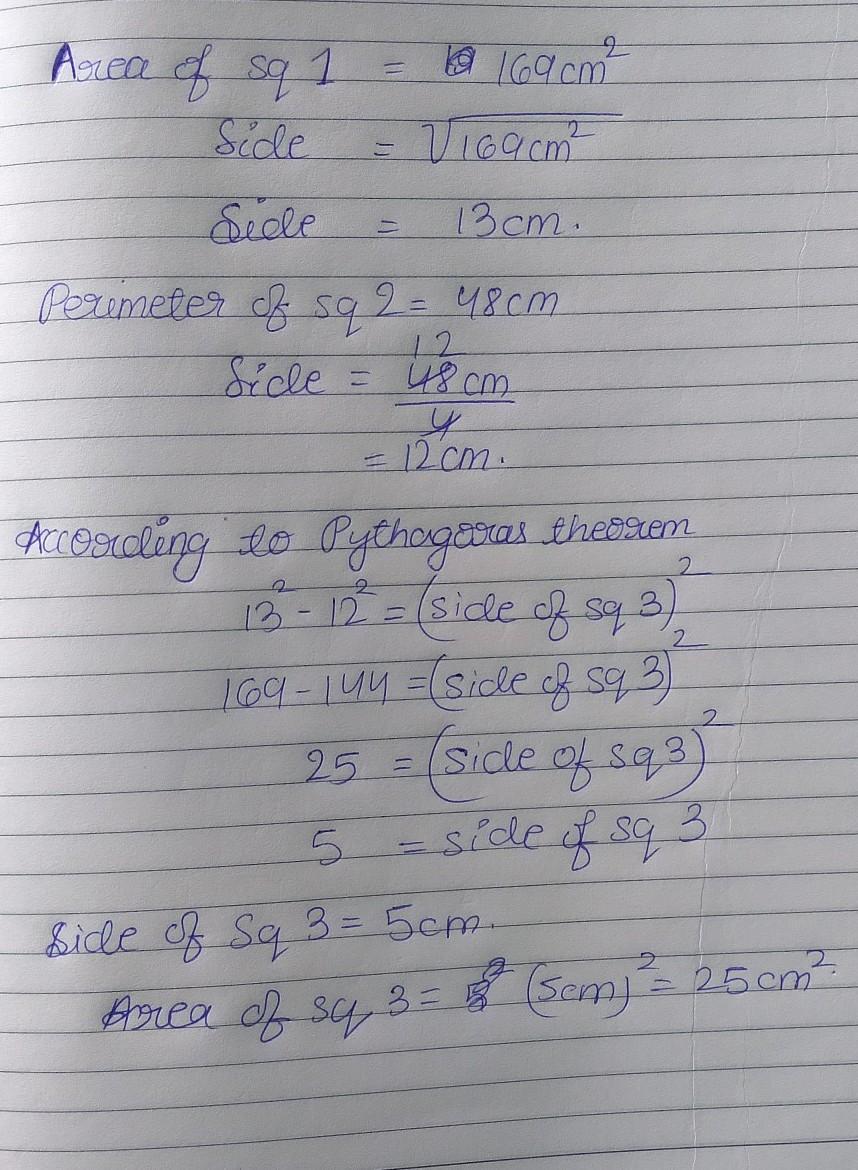 Area of sq 1 = 169cm²
Side = √169cm²
Side = 13cm.
Perimeter of sq 2 = 48cm
12
Side = 48cm
4
= 12cm.
According to Pythagoras theorem
13² - 12² = (side of sq 3)²
169 - 144 = (side of sq 3)²
25 = (side of sq 3)²
5 = side of sq 3
Side of Sq 3 = 5cm.
Area of sq 3 = (5cm)² = 25cm².